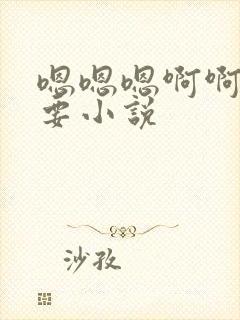 嗯嗯嗯啊啊
要小說
沙孜